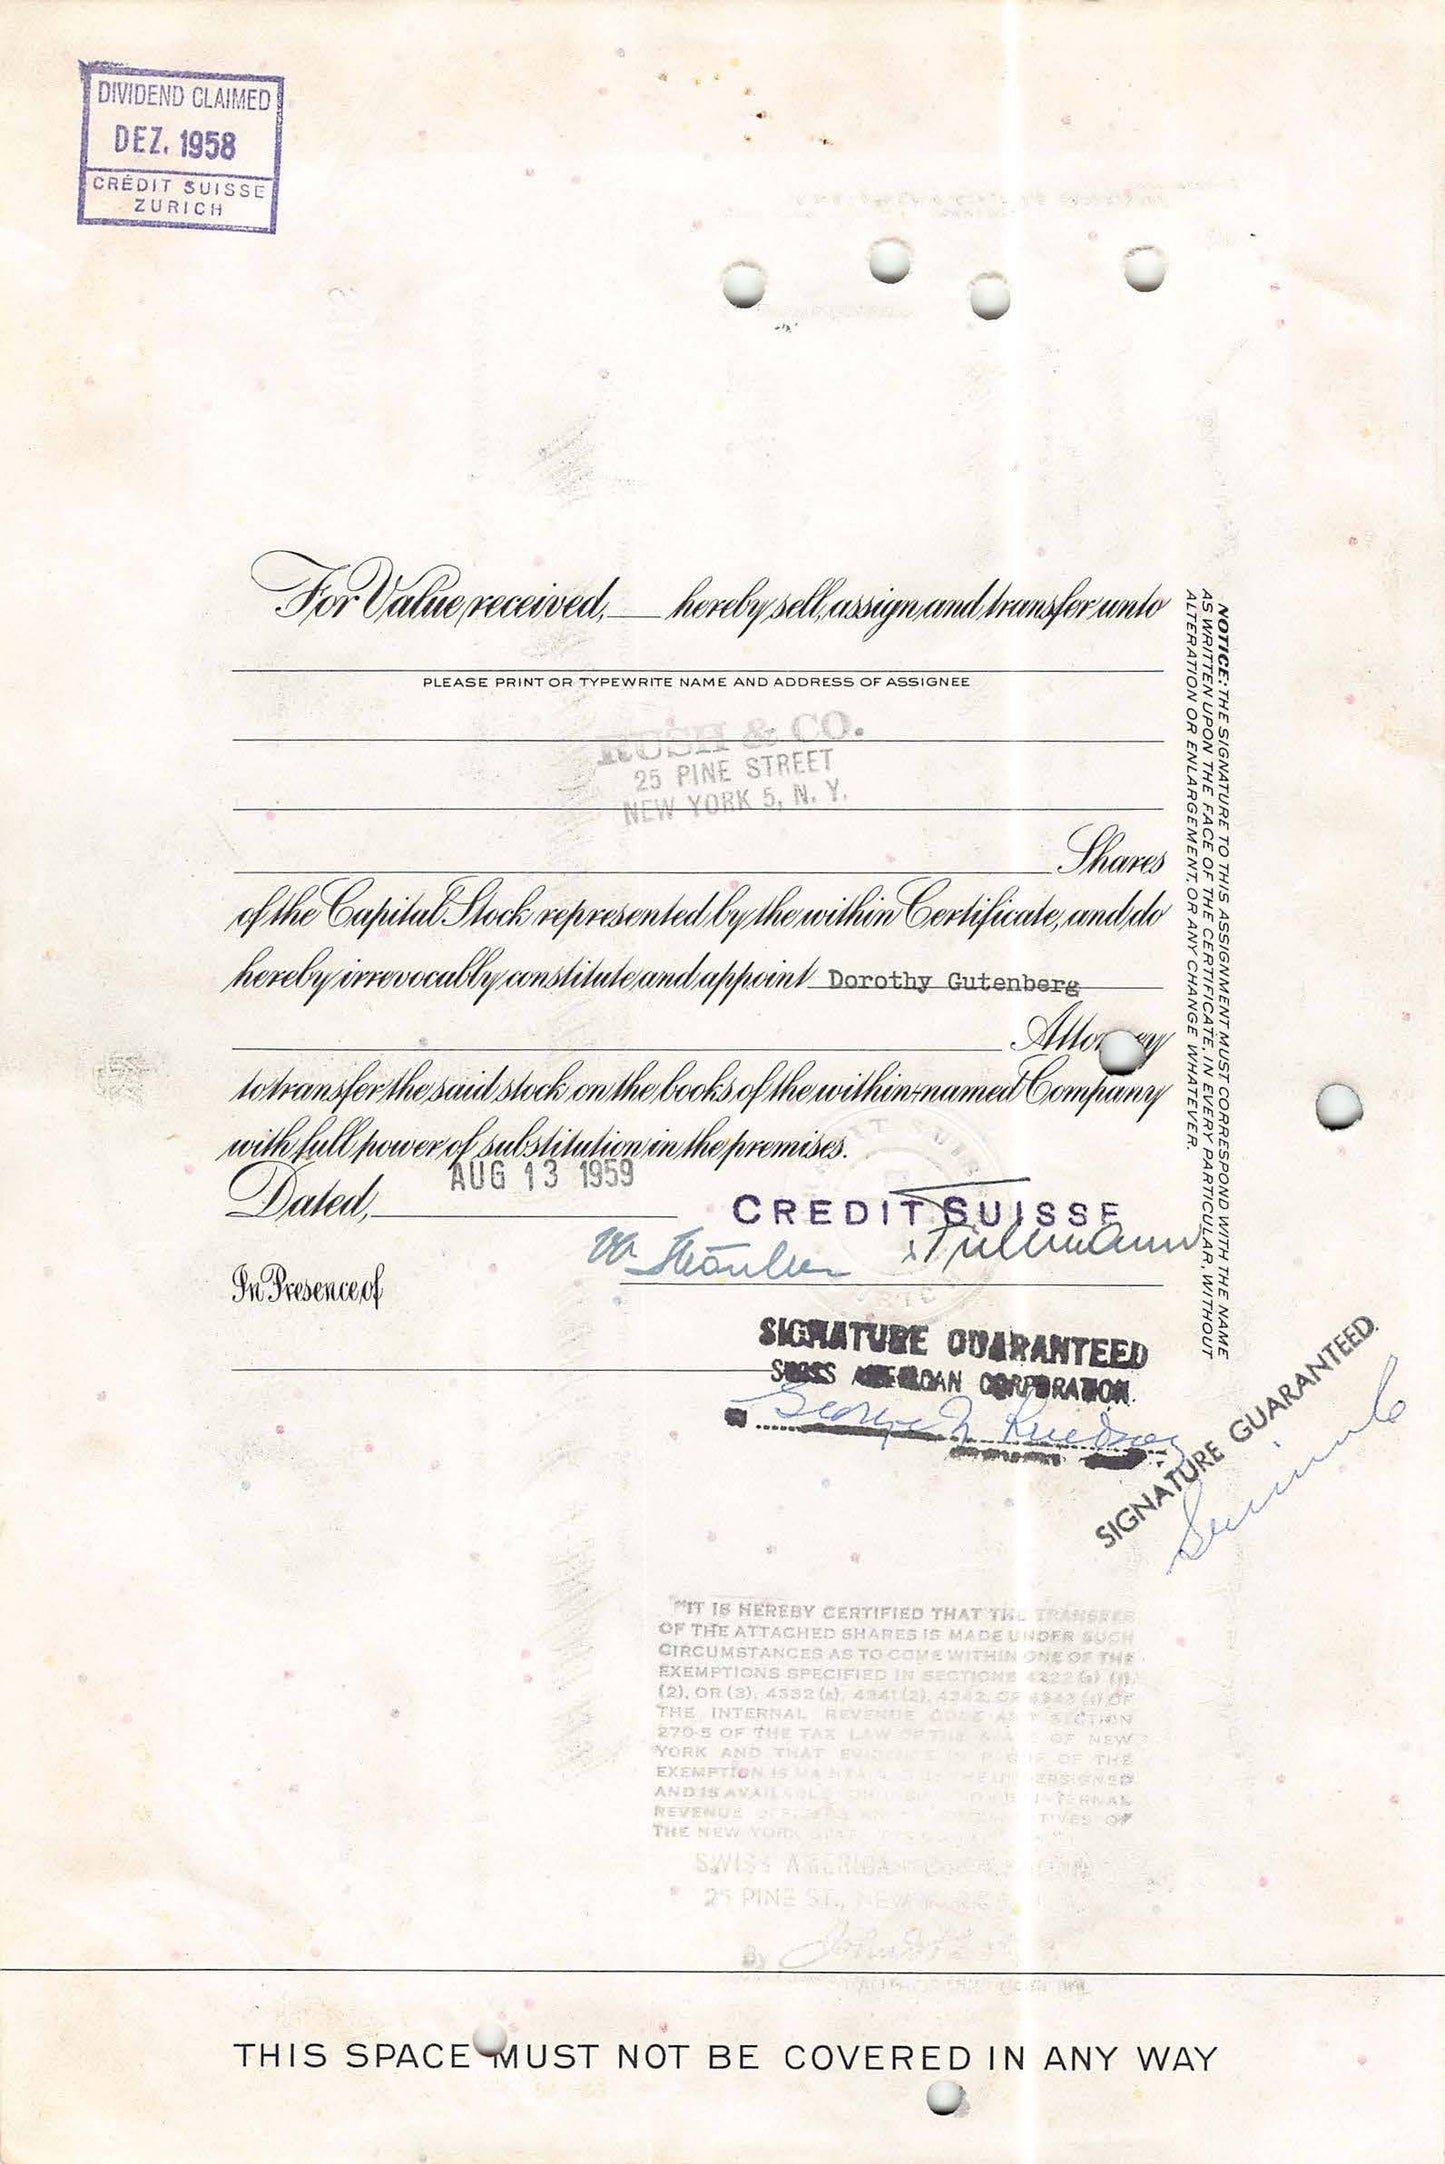 DIVIDEND CLAIMED
DEZ. 1958
CRÉDIT SUISSE
ZURICH
For Value received, hereby sell, assign and transfer unto
PLEASE PRINT OR TYPEWRITE NAME AND ADDRESS OF ASSIGNEE
RUSH & CO.
25 PINE STREET
NEW YORK 5, N. Y.
Shares
of the Capital Stock represented by the within Certificate, and do
hereby irrevocably constitute and appoint Dorothy Gutenberg
Attorney
to transfer the said stock on the books of the within-named Company
with full power of substitution in the premises.
AUG 13 1959
Dated,
CREDIT SUISSE
In Presence of
SIGNATURE GUARANTEED
SWISS AMERICAN CORPORATION
SIGNATURE GUARANTEED
NOTICE: THE SIGNATURE TO THIS ASSIGNMENT MUST CORRESPOND WITH THE NAME
AS WRITTEN UPON THE FACE OF THE CERTIFICATE, IN EVERY PARTICULAR, WITHOUT
ALTERATION OR ENLARGEMENT, OR ANY CHANGE WHATEVER.
"IT IS HEREBY CERTIFIED THAT THE TRANSFER
OF THE ATTACHED SHARES IS MADE UNDER SUCH
CIRCUMSTANCES AS TO COME WITHIN ONE OF THE
EXEMPTIONS SPECIFIED IN SECTIONS 4322 (a) (1),
(2), OR (3), 4332 (a), 4341 (2), 4342, OR 4343 (1) OF
THE INTERNAL REVENUE CODE SECTION
270-5 OF THE TAX LAW OF THE OF NEW
YORK AND THAT OF THE
EXEMPTION IS
AND IS
REVENUE OF
THE NEW YORK
SWISS AMERICAN
25 PINE ST., NEW
By
THIS SPACE MUST NOT BE COVERED IN ANY WAY